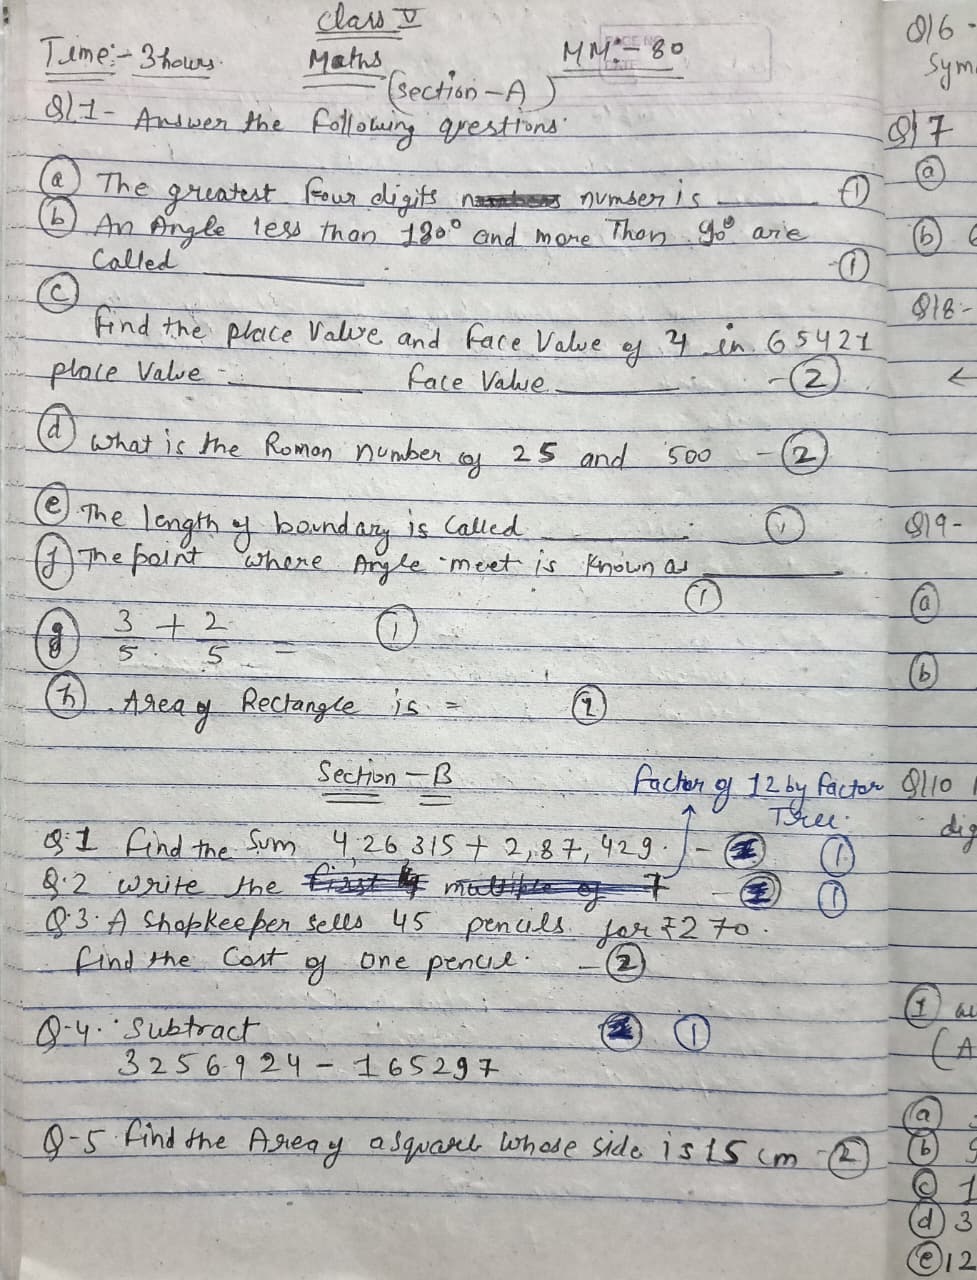 Class V
Time:- 3 hours. Maths MM:- 80
(Section - A)
Q/1- Answer the following questions.
(a) The greatest four digits number is ______ (1)
(b) An Angle less than 180° and more Than 90° are
Called ______ -(1)
(c)
Find the place Value and face Value of 4 in 65421
place Value - ______ face Value ______ -(2)
(d) What is the Roman number of 25 and 500 -(2)
(e) The length of boundary is Called ______. (1)
(f) The point where Angle meet is Known as ______
(1)
(g) 3/5 + 2/5 = (1)
(h) Area of Rectangle is = (1)
Section - B
factor of 12 by factor
Tree.
Q.1 Find the Sum 4,26 315 + 2,87,429. - (1)
Q.2 write the 7 - (1)
Q.3. A Shopkeeper sells 45 pencils for ₹270.
find the Cost of one pencil. -(2)
Q-4. Subtract (1)
3256924 - 165297
Q-5 Find the Area of a square whose side is 15 cm -(2)
Q/6 -
Sym
Q/7
(a)
(b)
Q/8-
Q/9-
(a)
(b)
Q/10
dig
(1)
(A
(a)
(b) 9
(c) 1
(d) 3
(e) 12